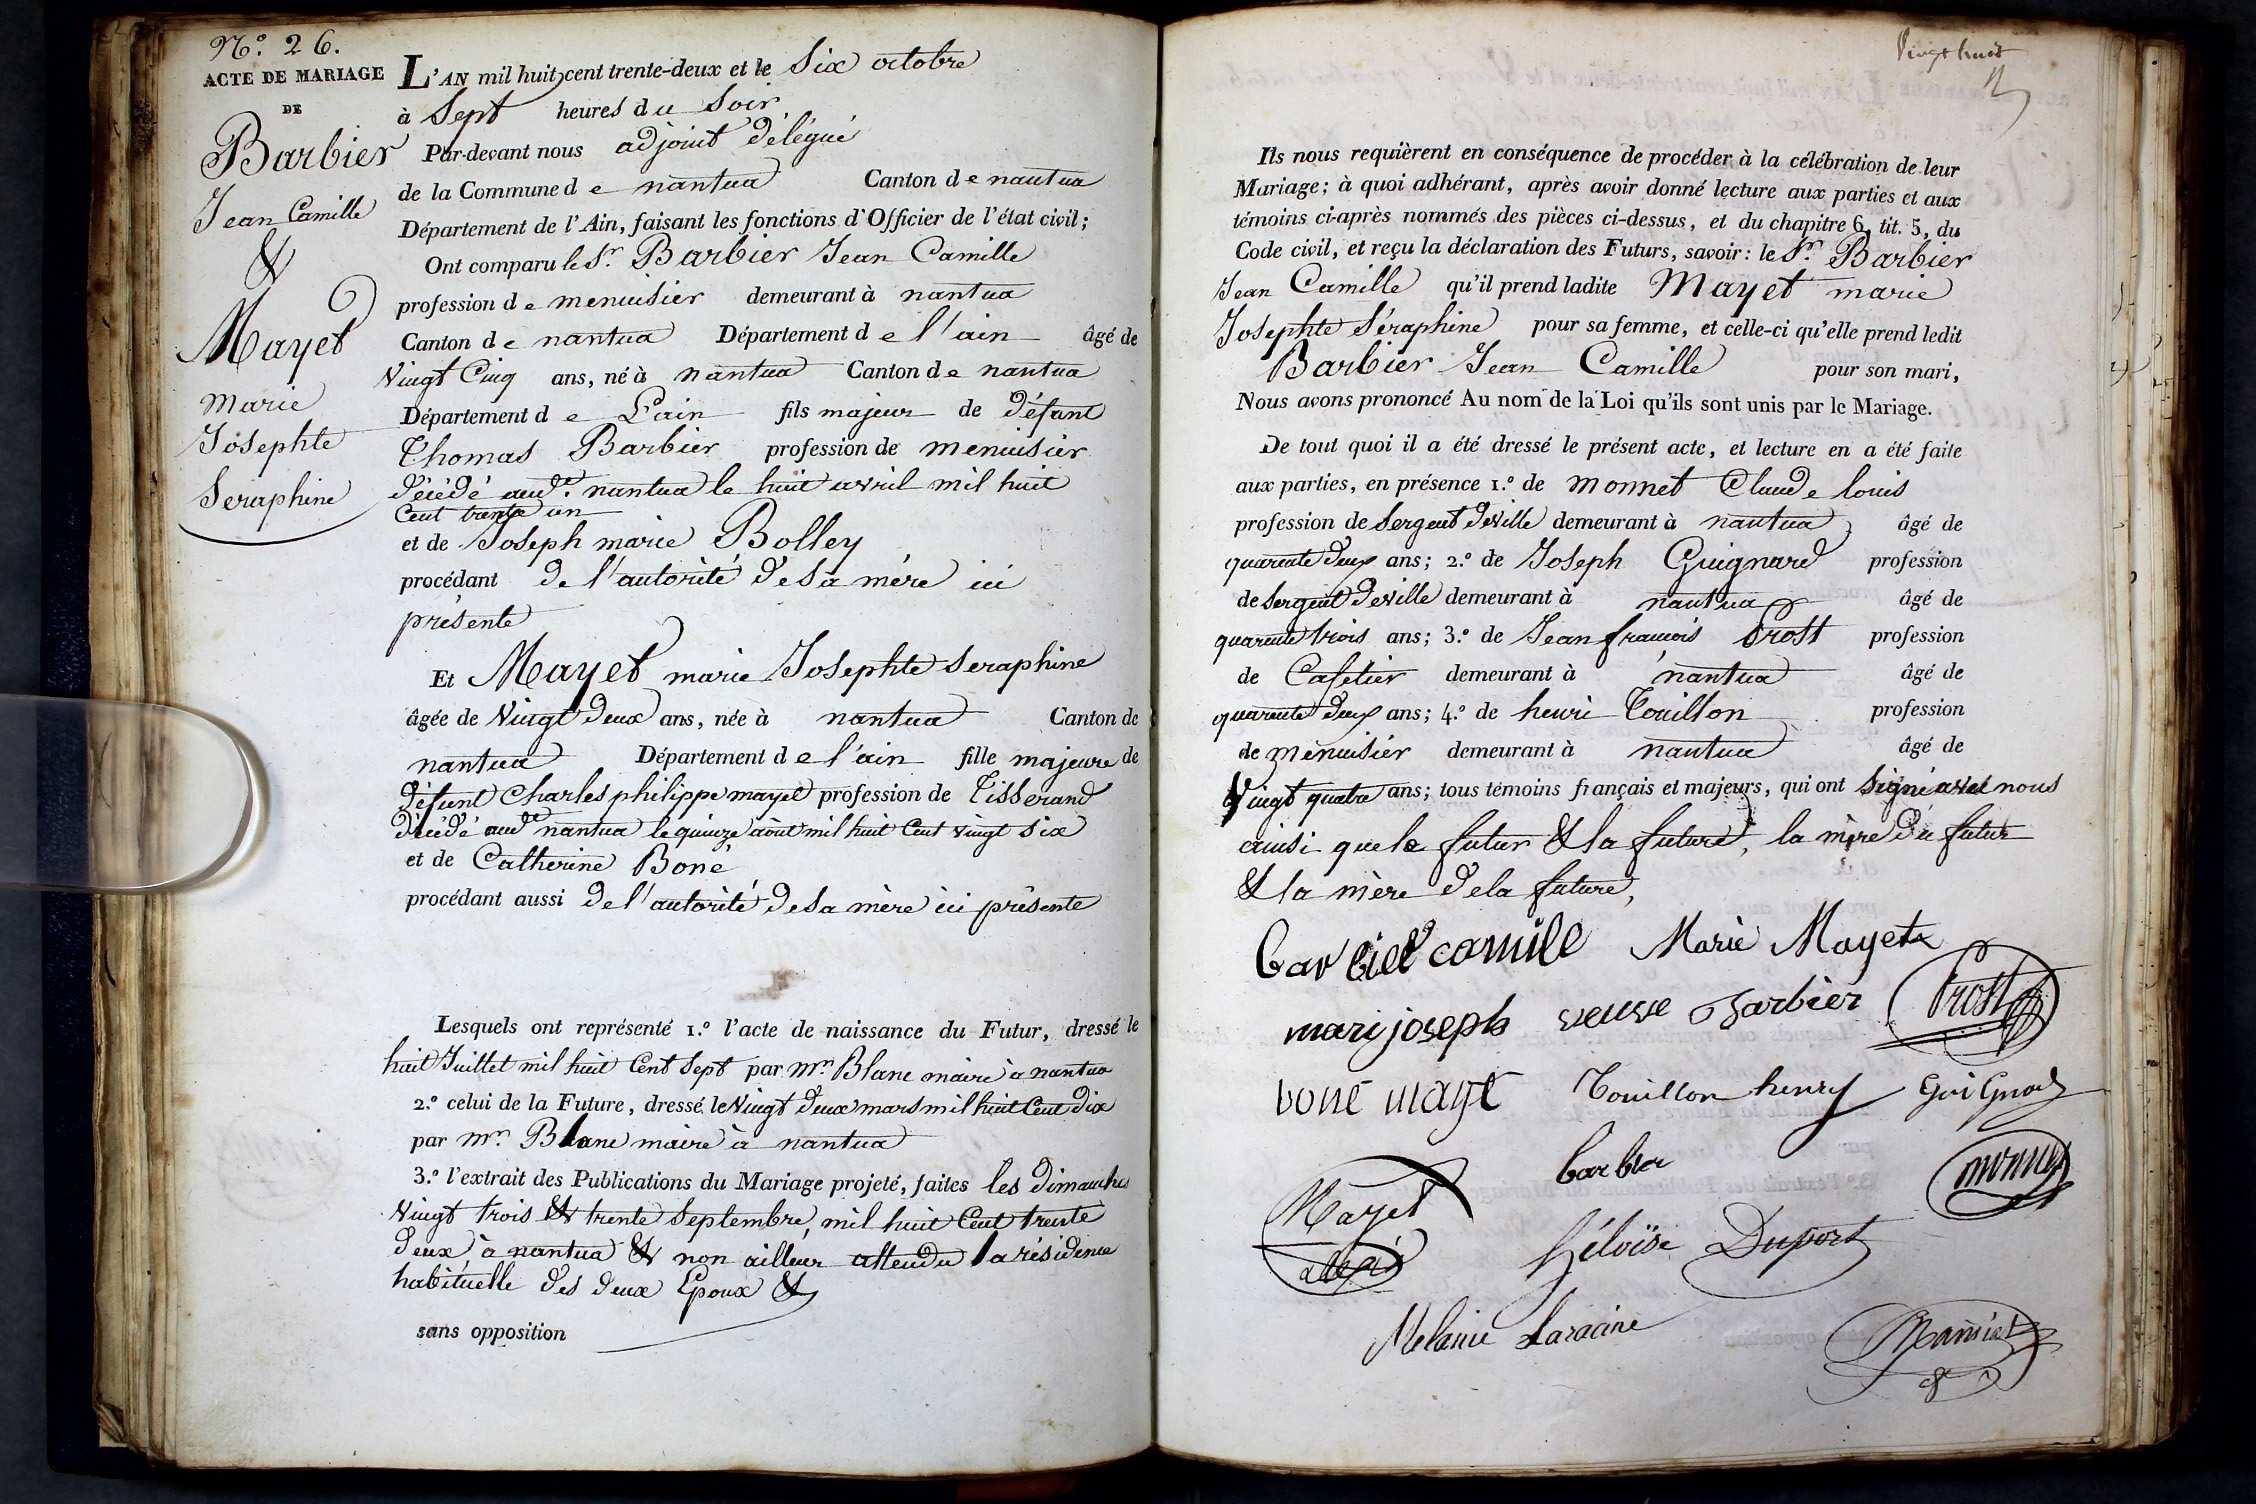 N.º 26.
ACTE DE MARIAGE
DE
Barbier
Jean Camille
&
Mayet
Marie
Josephte
Seraphine
L'AN mil huit cent trente-deux et le Six octobre
à Sept heures du Soir
Par-devant nous adjoint délégué
de la Commune de nantua Canton de nantua
Département de l'Ain, faisant les fonctions d'Officier de l'état civil;
Ont comparu le Sr. Barbier Jean Camille
profession de menuisier demeurant à nantua
Canton de nantua Département de l'ain âgé de
Vingt Cinq ans, né à nantua Canton de nantua
Département de L'ain fils majeur de défunt
Thomas Barbier profession de menuisier
décédé aud.t nantua le huit avril mil huit
Cent trente un
et de Joseph marie Bolley
procédant de l'autorité de sa mère ici
présente
Et Mayet marie Josephte Seraphine
âgée de Vingt deux ans, née à nantua Canton de
nantua Département de l'ain fille majeure de
défunt Charles philippe mayet profession de Tisserand
décédé aud.t nantua le quinze août mil huit Cent vingt Six
et de Catherine Boné
procédant aussi de l'autorité de sa mère ici présente
Lesquels ont représenté 1.º l'acte de naissance du Futur, dressé le
huit Juillet mil huit Cent Sept par Mr. Blanc maire à nantua
2.º celui de la Future, dressé le Vingt deux mars mil huit Cent dix
par Mr. Blanc maire à nantua
3.º l'extrait des Publications du Mariage projeté, faites les dimanches
Vingt trois & trente Septembre, mil huit Cent trente
deux à nantua & non ailleur attendu la résidence
habituelle des deux Epoux &
sans opposition
Vingt huit
Ils nous requièrent en conséquence de procéder à la célébration de leur
Mariage; à quoi adhérant, après avoir donné lecture aux parties et aux
témoins ci-après nommés des pièces ci-dessus, et du chapitre 6, tit. 5, du
Code civil, et reçu la déclaration des Futurs, savoir: le Sr. Barbier
Jean Camille qu'il prend ladite Mayet marie
Josephte Séraphine pour sa femme, et celle-ci qu'elle prend ledit
Barbier Jean Camille pour son mari,
Nous avons prononcé Au nom de la Loi qu'ils sont unis par le Mariage.
De tout quoi il a été dressé le présent acte, et lecture en a été faite
aux parties, en présence 1.º de Monnet Claude louis
profession de Sergent deville demeurant à nantua âgé de
quarente deux ans; 2.º de Joseph Guignard profession
de Sergent deville demeurant à nantua âgé de
quarente trois ans; 3.º de Jean françois Prost profession
de Cafetier demeurant à nantua âgé de
quarente deux ans; 4.º de henri Touillon profession
de menuisier demeurant à nantua âgé de
Vingt quatre ans; tous témoins français et majeurs, qui ont Signé avec nous
ainsi que le futur & la future, la mère du futur
& la mère de la future,
barbier camile Marie Mayet
mari joseph veuve Barbier Prost
boné mayt Touillon henry Guignard
Mayet barbier monnet
Héloïse Duport
Melanie Laracine